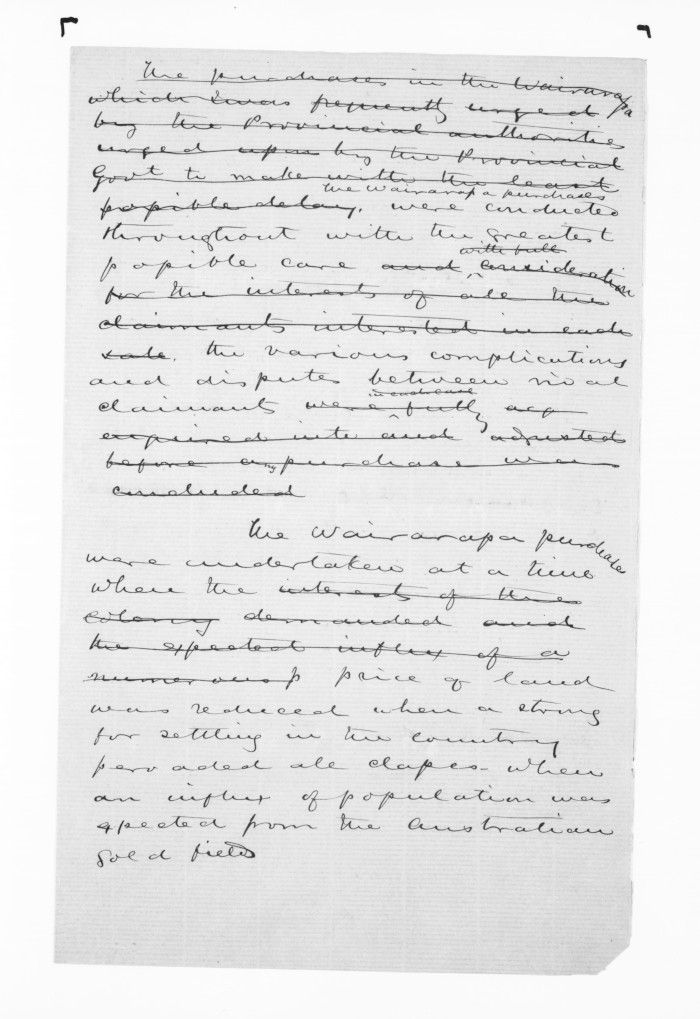 The purchases in the Wairarapa
which was frequently urged
by the Provincial authorities
urged upon by the Provincial
Govt to make with the least
The Wairarapa purchases
possible delay, were conducted
throughout with the greatest
with full
possible care and consideration
for the interests of all the
claimants interested in each
sale. the various complications
and disputes between rival
in each case
claimants were fully
enquired into and adjusted
before any purchase was
concluded
The Wairarapa purchase
were undertaken at a time
when the interests of the
colony demanded and
the expected influx of a
numerous p price of land
was reduced when a strong
for settling in the country
pervaded all classes - when
an influx of population was
expected from the Australian
gold fields